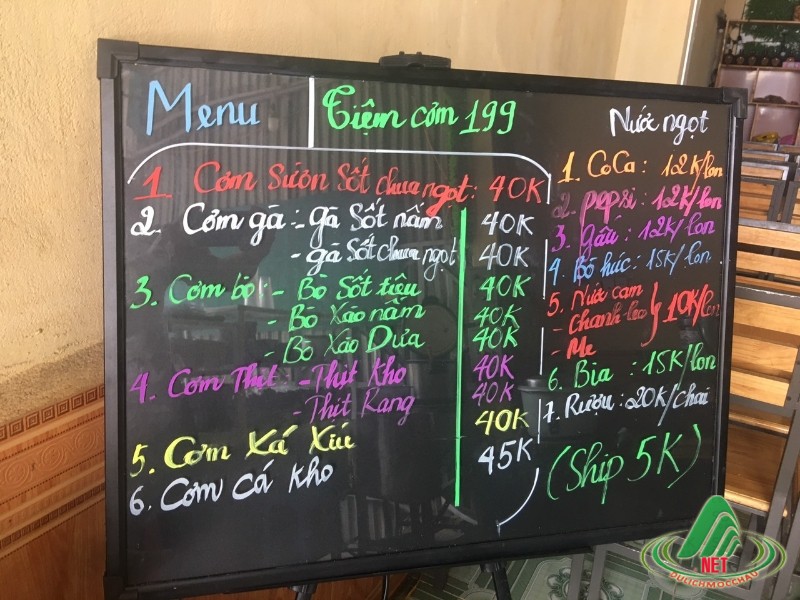 Menu
Tiệm cơm 199
1 Cơm Sườn Sốt chua ngọt: 40K
2. Cơm gà: - gà Sốt nấm 40K
- gà Sốt chua ngọt 40K
3. Cơm bò: - Bò Sốt tiêu 40K
- Bò Xào nấm 40K
- Bò Xào Dưa 40K
4. Cơm Thịt - Thịt Kho 40K
- Thịt Rang 40K
5. Cơm Xá Xíu 40K
6. Cơm cá kho 45K
Nước ngọt
1. CoCa: 12K/lon
2. pepsi: 12K/lon
3. Gấu: 12K/lon
4. Bò húc: 15K/lon
5. Nước cam
- Chanh-leo 10K/lon
- Me
6. Bia: 15K/lon
7. Rượu: 20K/chai
(Ship 5K)
NET
DULICHMOCCHAU